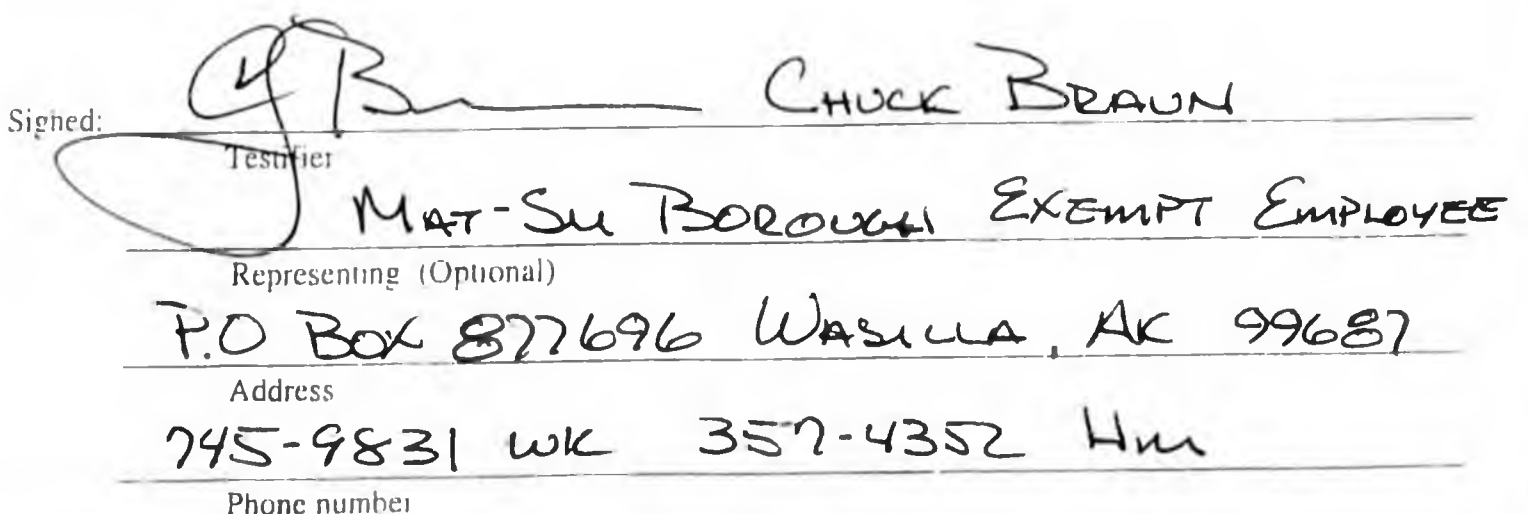 Signed: CHUCK BRAUN
Testifier
MAT-SU BOROUGH EXEMPT EMPLOYEE
Representing (Optional)
P.O BOX 877696 WASILLA, AK 99687
Address
745-9831 WK 357-4352 Hm
Phone number